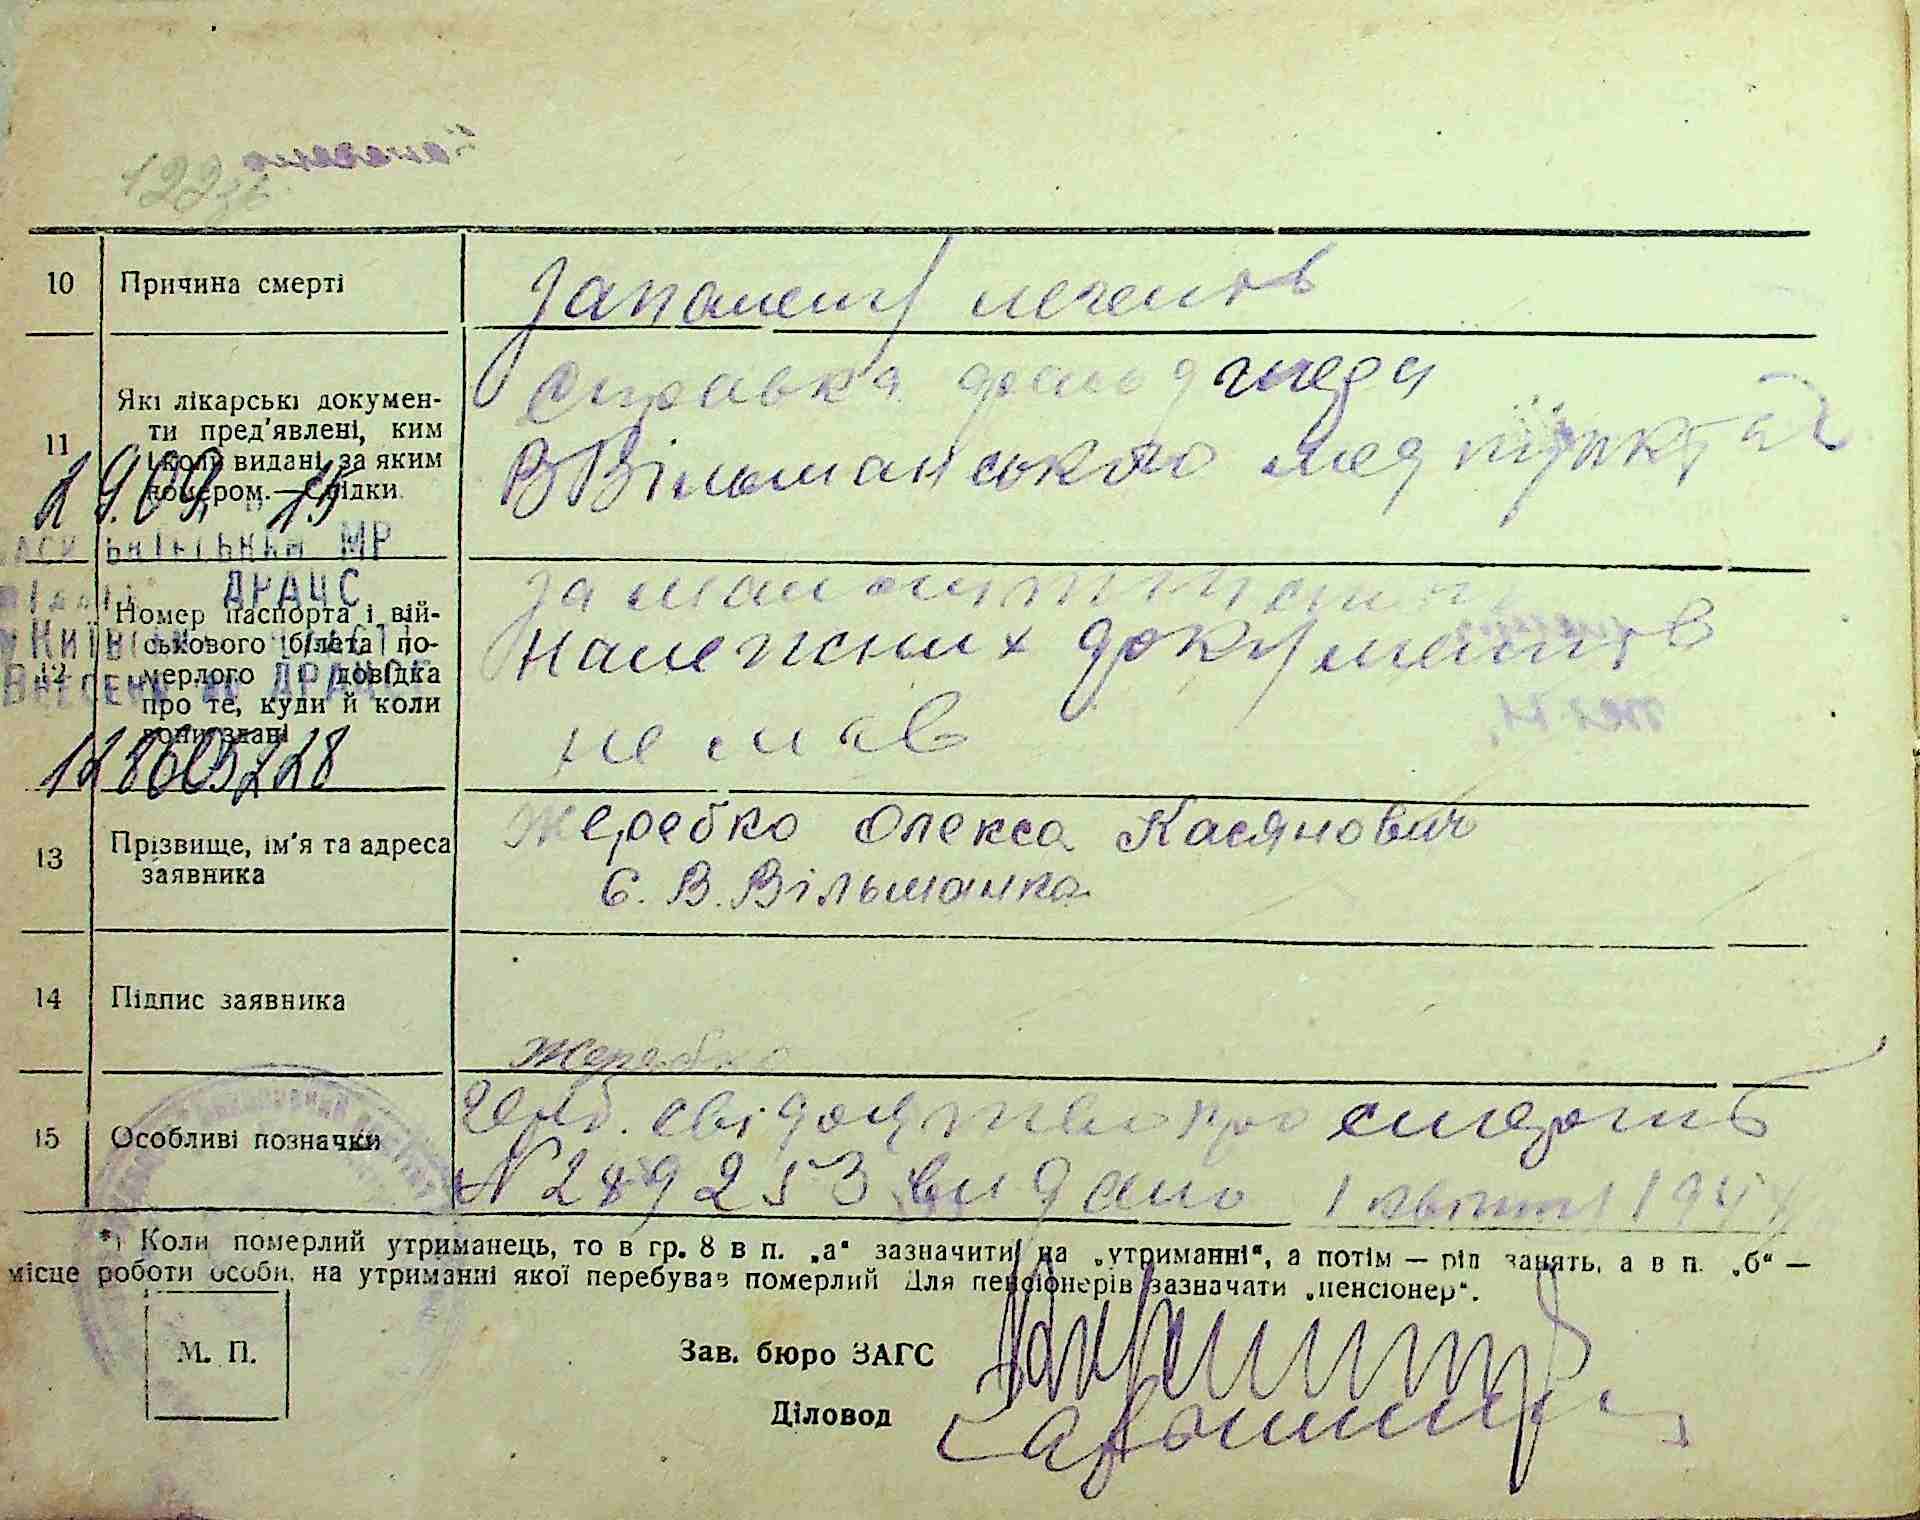 122
10 Причина смерті
Запаленя легенів
11 Які лікарські докумен-
ти пред'явлені, ким
і коли видані за яким
номером.—Свідки
Справка фельдшера
ВВільшанського медпункта
19.09.
МР
ДРАЦС
12 Номер паспорта і вій-
ськового білета по-
мерлого і довідка
про те, куди й коли
вони здані
За малолітством
належних документів
не мав
128605228
13 Прізвище, ім'я та адреса
заявника
Жеребко Олекса Касянович
с. В. Вільшанка
14 Підпис заявника
Жеребко
15 Особливі позначки
свідоцтво про смерть
N 289253 видано 1 квітня
*) Коли померлий утриманець, то в гр. 8 в п. „а“ зазначити на „утриманні“, а потім — рід занять, а в п. „б“ —
місце роботи особи, на утриманні якої перебував померлий Для пенсіонерів зазначати „пенсіонер“.
М. П.
Зав. бюро ЗАГС
Діловод